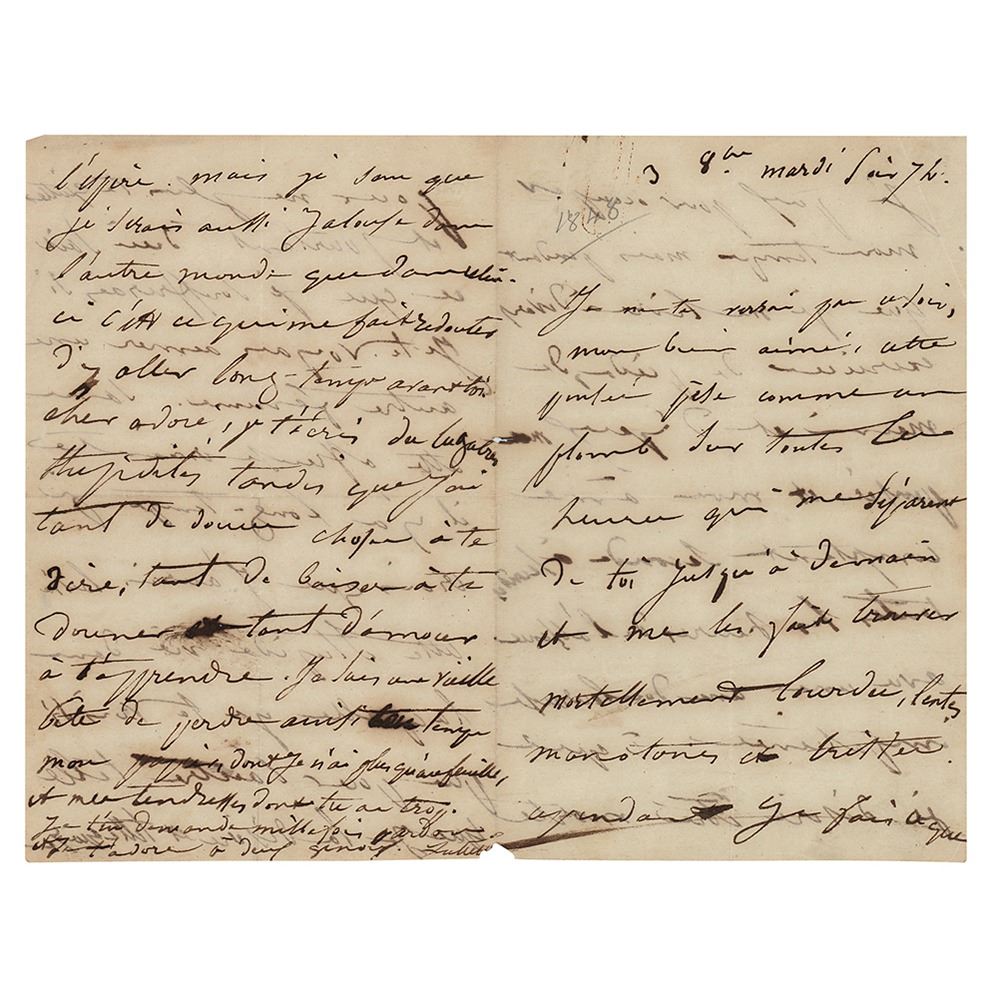 3 8.bre mardi soir 7 h.
1848
Je ne te verrai pas ce soir,
mon bien aimé, cette
pensée pèse comme un
plomb sur toutes les
heures qui me séparent
de toi jusqu'à demain
et me les fait trouver
mortellement lourdes, lentes,
monotones et tristes.
cependant je fais ce que
l'espère. mais je sens que
je serais aussi jalouse dans
l'autre monde que dans celui-
ci c'est ce qui me fait redouter
d'y aller long-temps avant toi
cher adoré, je t'écris des
stupidités tandis que j'ai
tant de douces choses à te
dire, tant de baisers à te
donner et tant d'amour
à t'apprendre. Je suis une vieille
bête de perdre ainsi mon temps
mon papier, dont je n'ai plus qu'une feuille,
et mes tendresses dont tu as trop.
Je t'en demande mille fois pardon
et je t'adore à deux genoux. Juliette